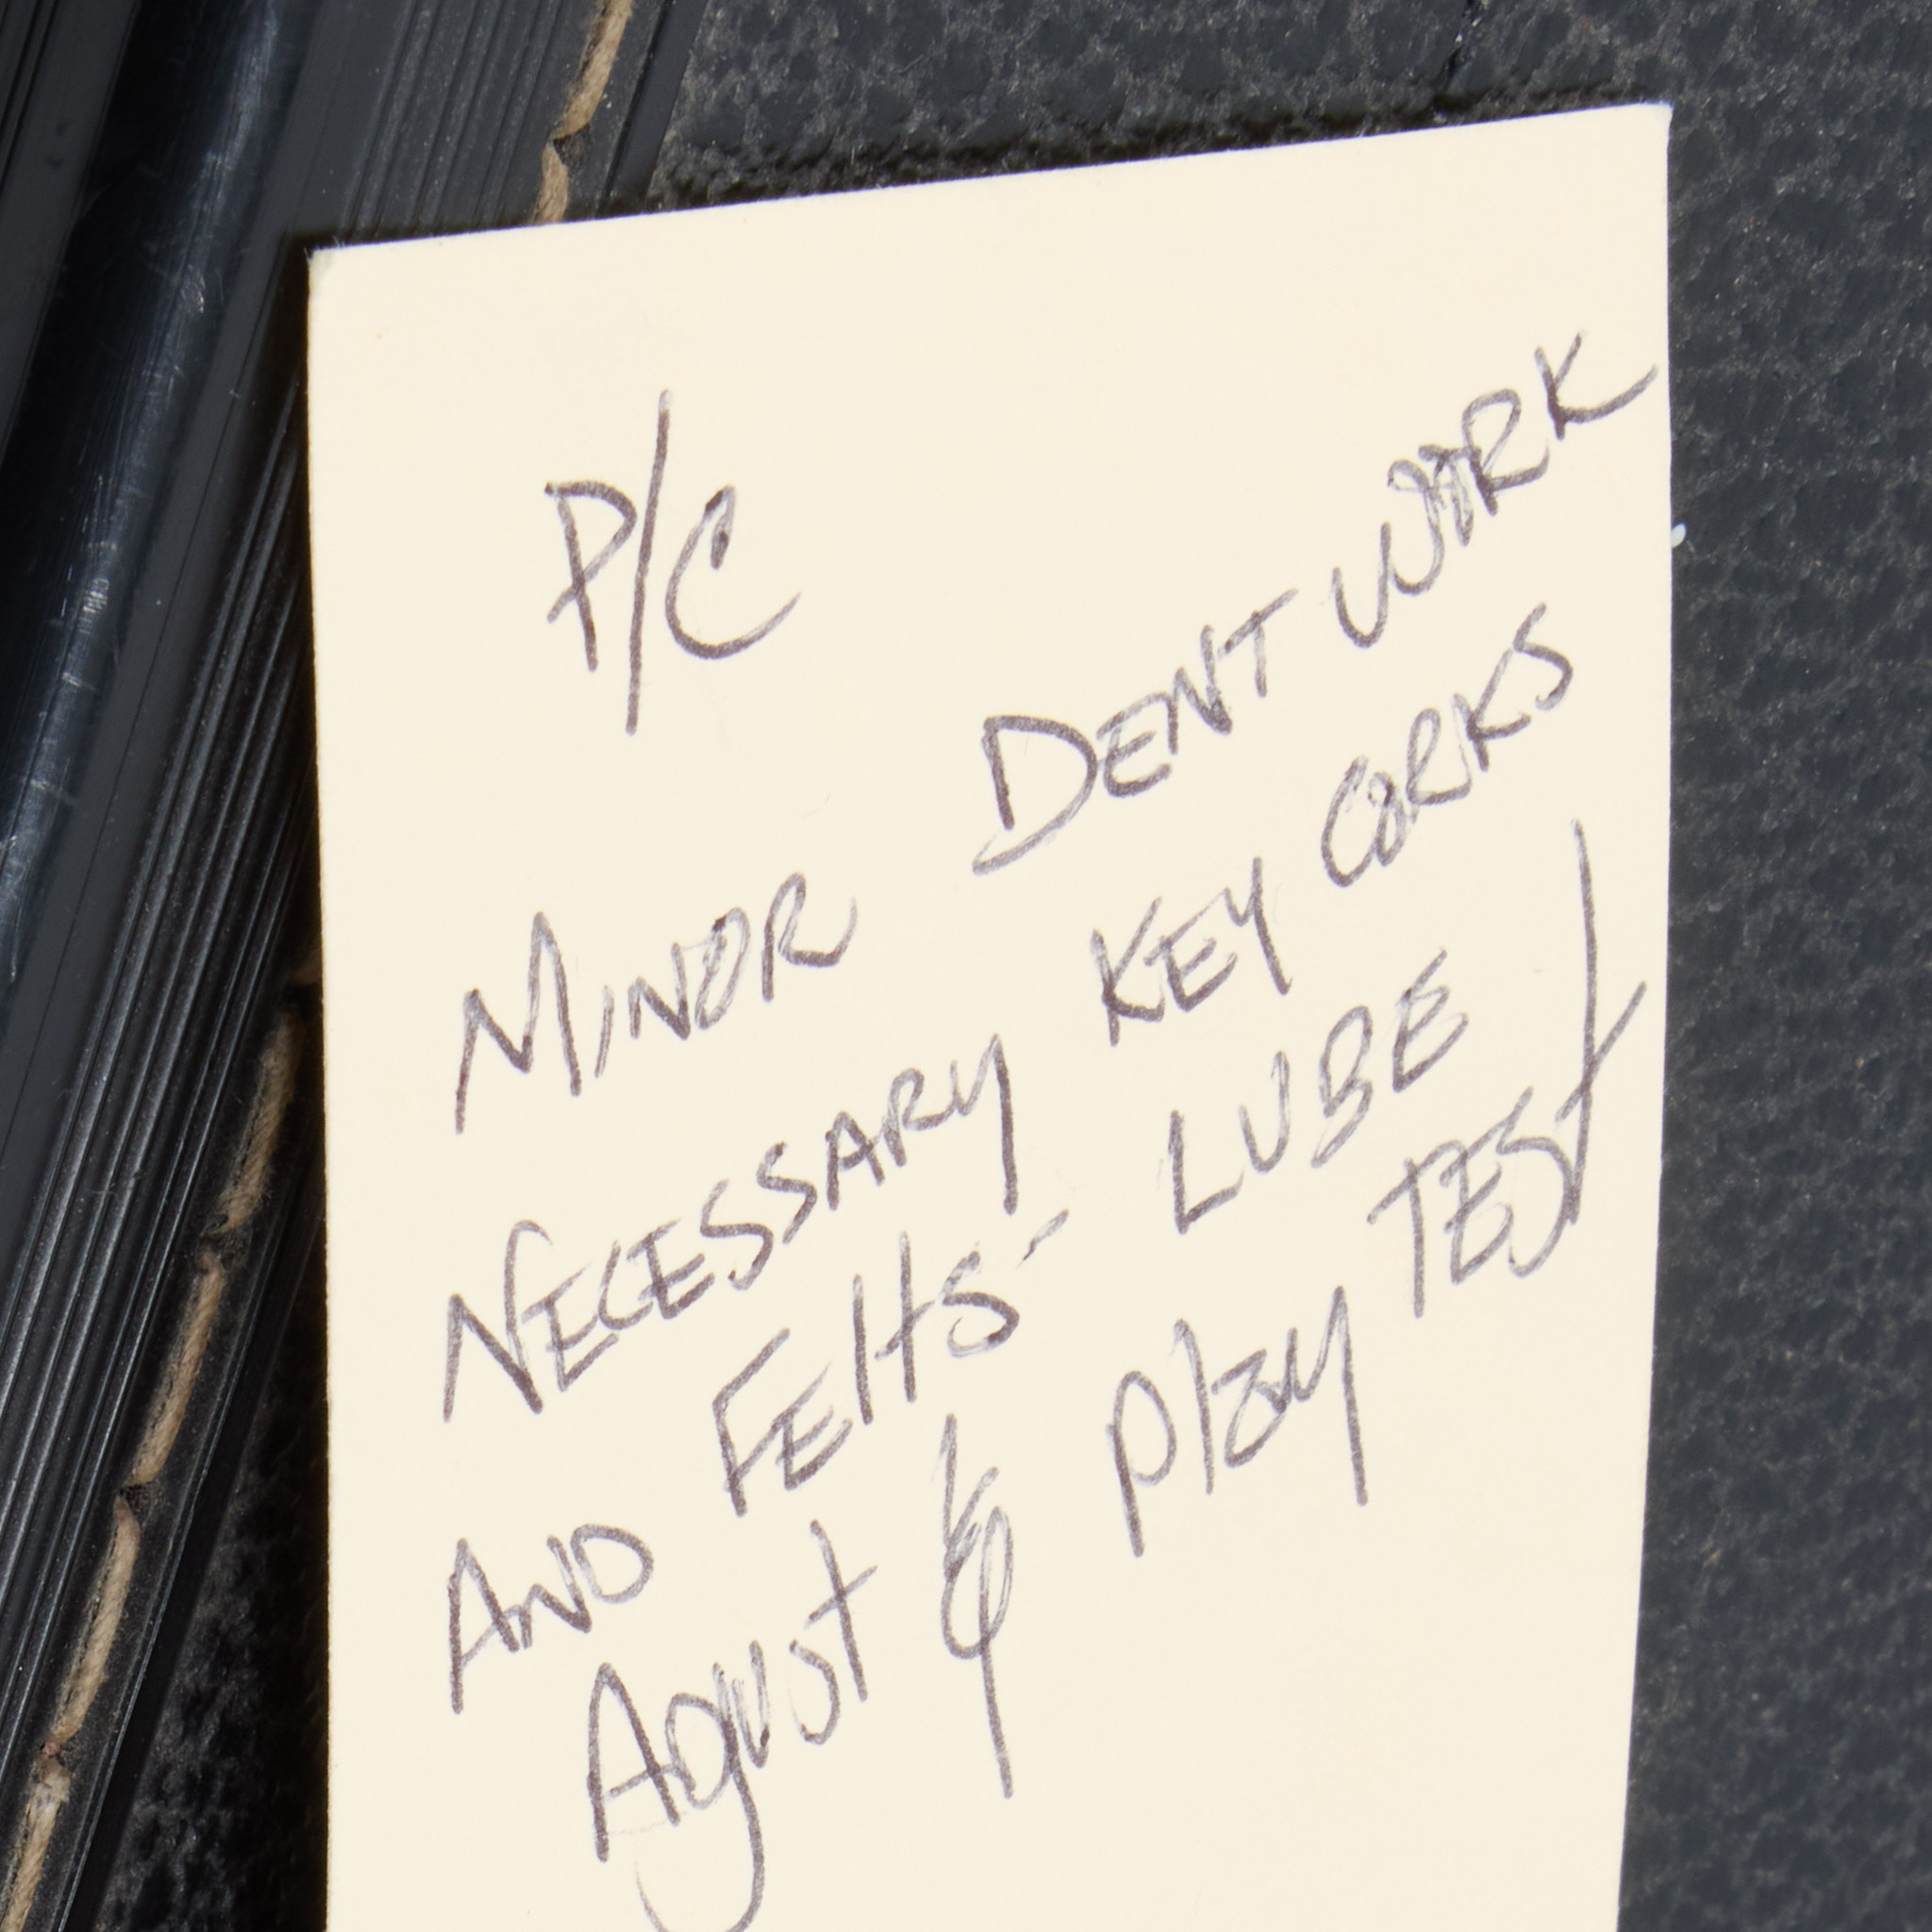 P/C
MINOR DENT WORK
NECESSARY KEY CORKS
AND FEltS - LUBE
AdJUSt & Play TESt